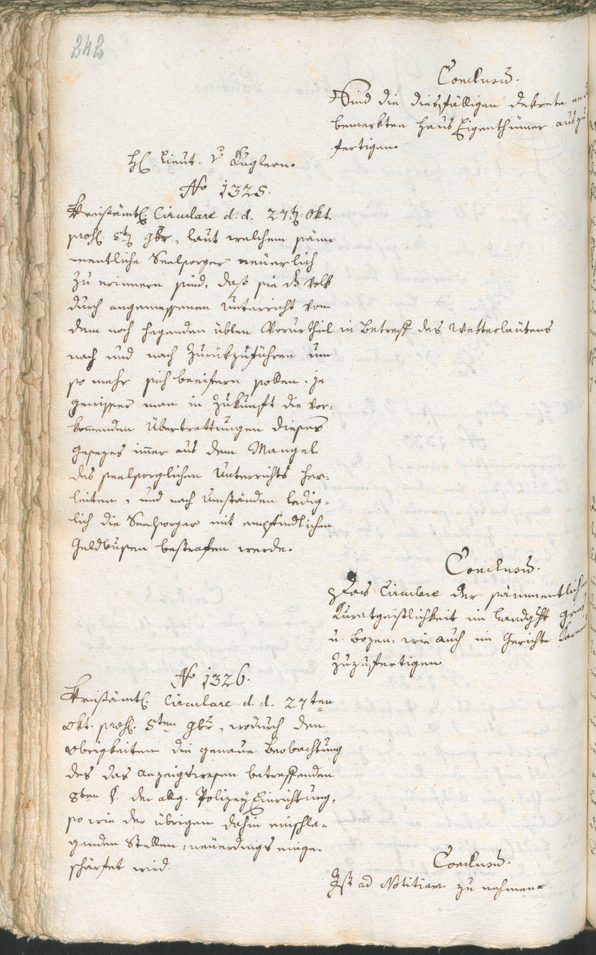 242
Conclusum.
Sind die dießfälligen Dekrete an die
bemerkten Haus Eigenthümer auszu
fertigen.
H. Lieut. v. Kuglern.
No 1325.
Kreisämtl. Circulare d. d. 27t. Okt.
praes. 5t. 9br, laut welchem sämm
mentliche Seelsorger neuerlich
zu erinnern sind, daß sie das Volk
durch angemessenen Unterricht von
dem noch hegenden üblen Vorurtheil in Betreff des Wetterläutens
nach und nach zurückzuführen um
so mehr sich beeifern sollen, je
gewisser man in Zukunft die vor
kommenden Übertrettungen dieses
Gesezes immer aus dem Mangel
des seelsorglichen Unterrichts her-
leiten, und nach Umständen ledig-
lich die Seelsorger mit empfindlichen
Geldbußen bestrafen werde.
Conclusum.
Das Circulare der sämmentlichen
Kuratgeistlichkeit im Landght
u. Bozen, wie auch im Gerichte
zuzufertigen
No 1326.
Kreisämtl. Circulare d. d. 27ten
Okt. praes. 5ten 9br, wodurch den
Obrigkeiten die genaue Beobachtung
des das Anzeigswesen betreffenden
8ten § der allg. Polizey Einrichtung,
so wie der übrigen dahin einschla-
genden Stellen, neuerdings einge-
schärfet wird
Conclusum.
Ist ad Notitiam zu nehmen